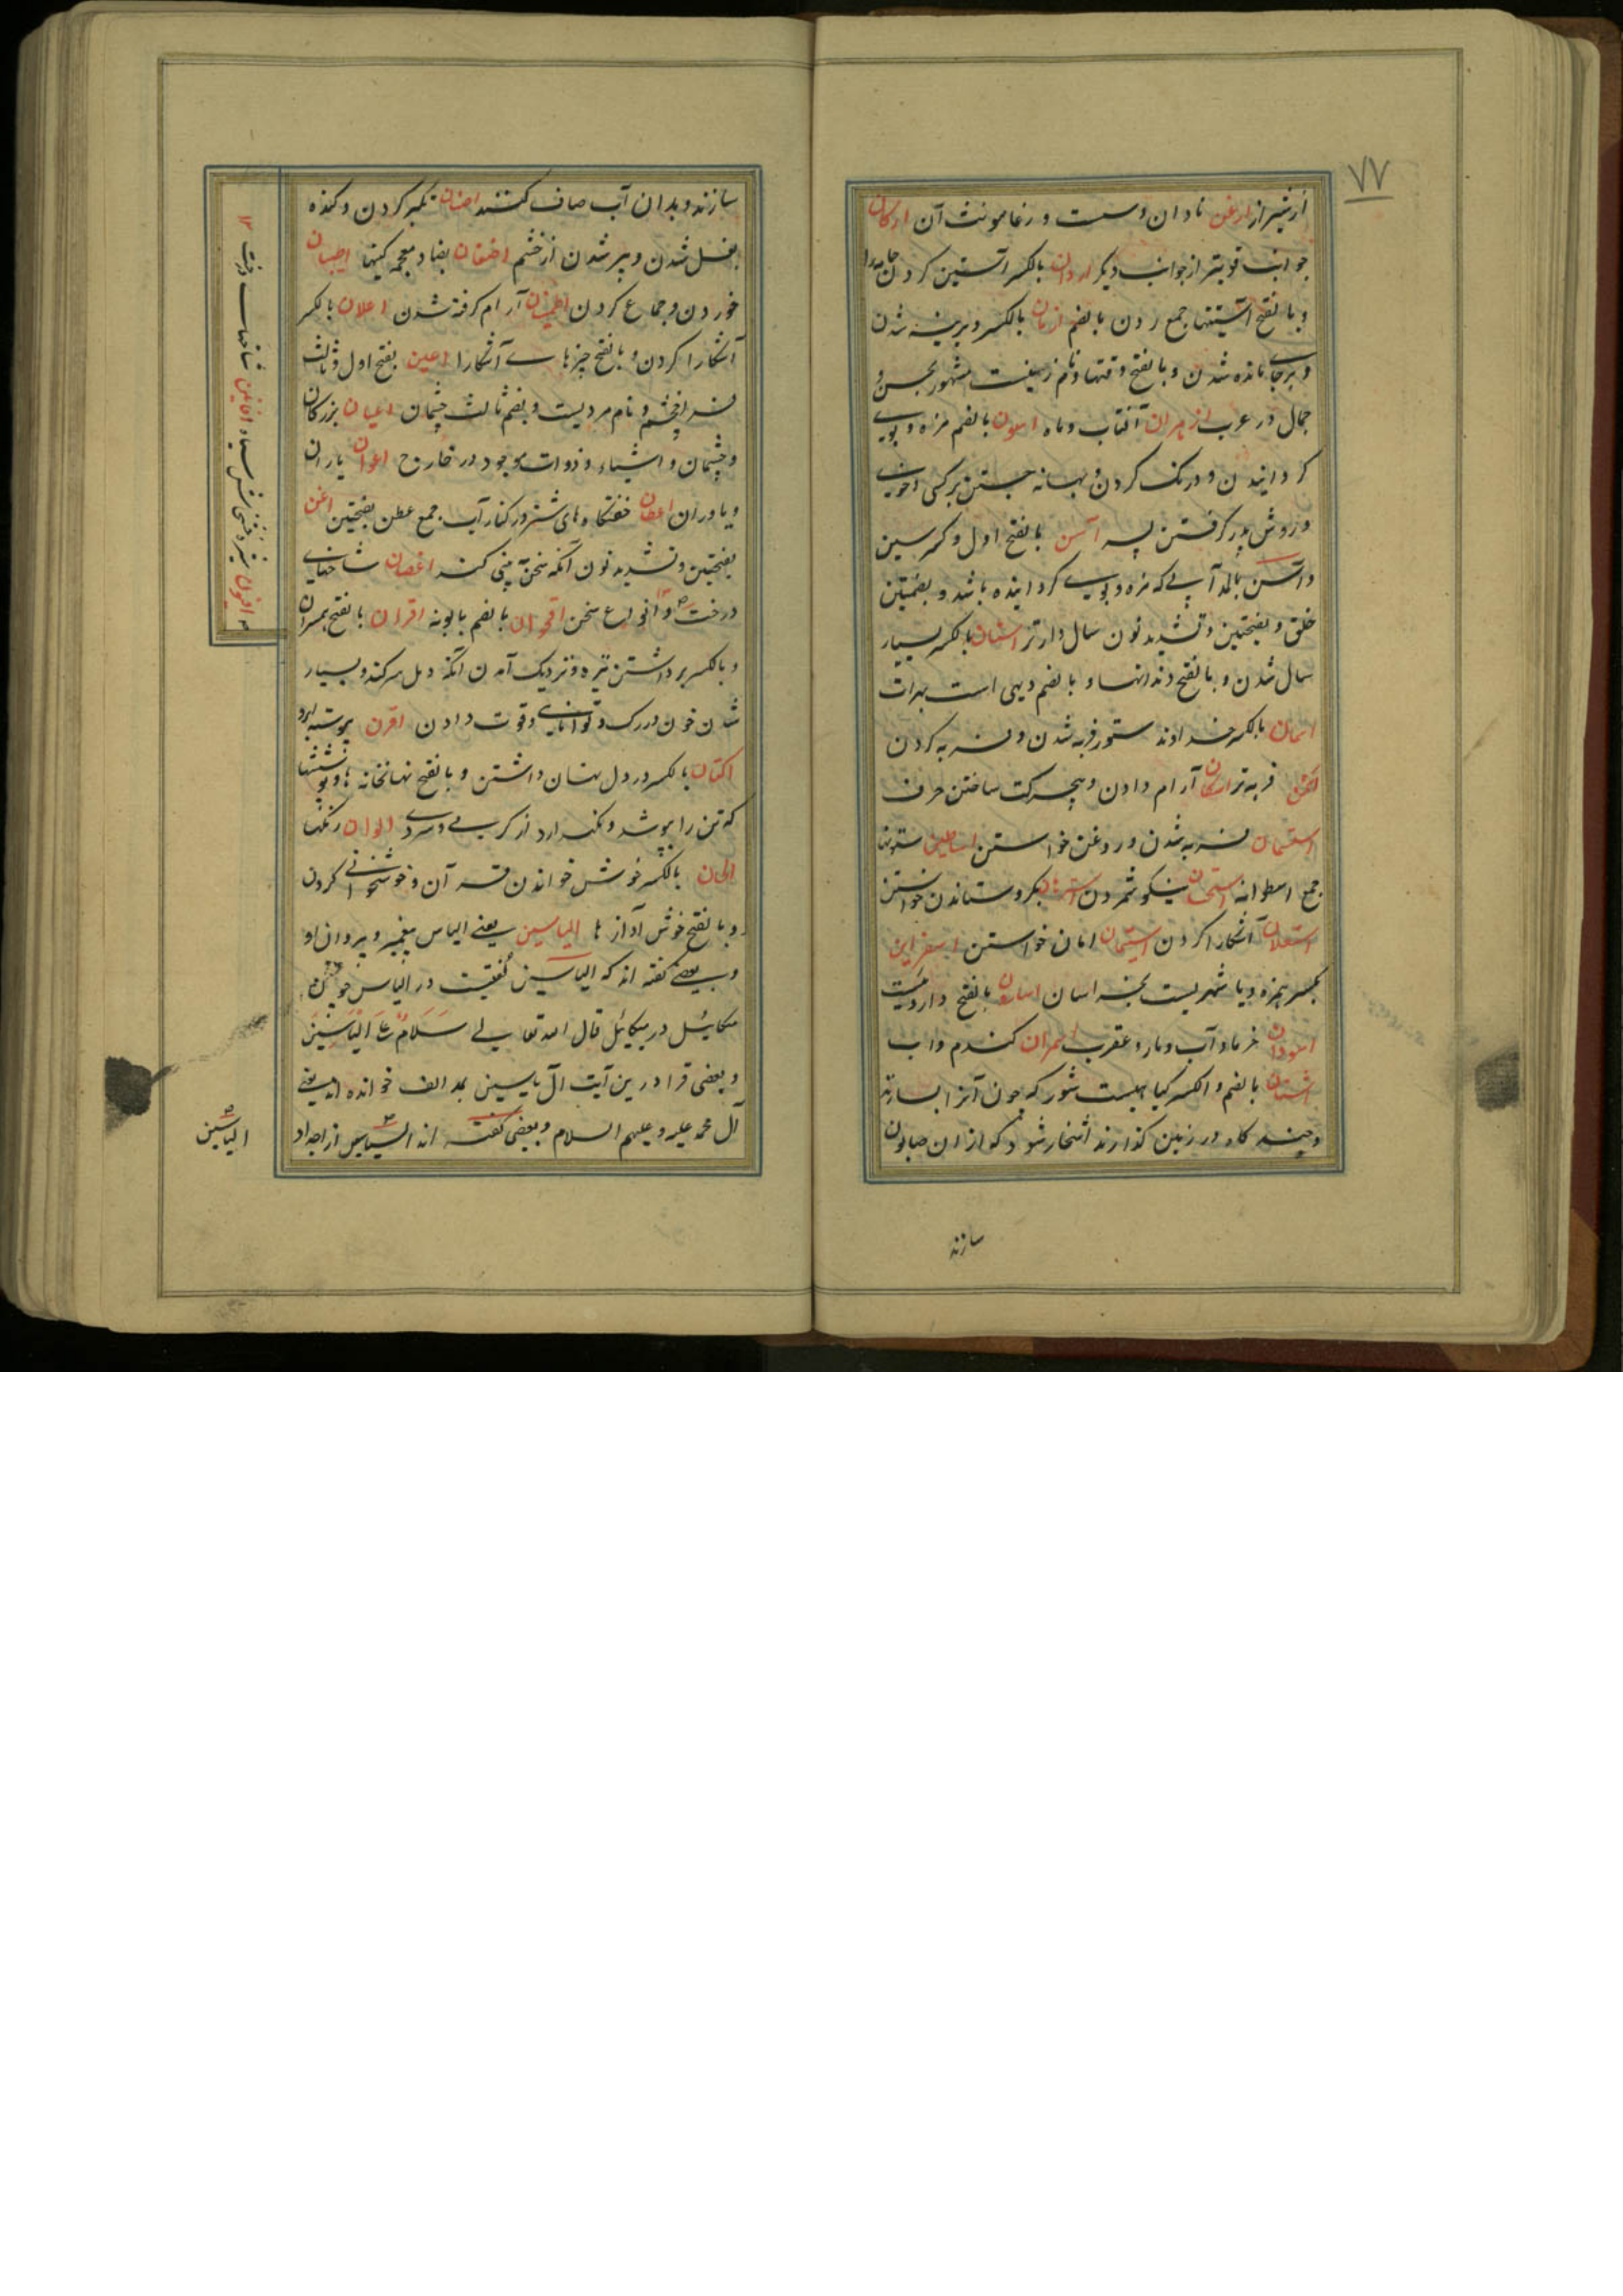 ۷۷
از شیراز ارعن نادان و سست و رعنا مونث آن ارکان
جوانب قویتر از جوانب دیگر اردان بالکسر آستین کردن جامه را
و بالفتح آستینها جمع ردن بالضم ازمان بالکسر دیرینه شدن
و برجای مانده شدن و بالفتح وقتها و نام زنیست مشهور بحسن و
جمال در عرب ازهران آفتاب و ماه اسون بالضم مزه و بوی
کردانیدن و درنک کردن و بهانه جستن بر کسی و خوی
و روش پدر کرفتن پسر آسن بالفتح اول و کسر سین
و آسن بالمد آبی که مزه و بوی کردانیده باشد و بضمتین
خلق و بفتحتین و تشدید نون سال دارتر اسنان بالکسر بسیار
سال شدن و بالفتح دندانها و بالضم دیهی است بهرات
اسمان بالکسر خداوند ستور فربه شدن و فربه کردن
اسمن فربه تر اسکان آرام دادن و بیحرکت ساختن حرف
استسمان فربه شدن و روغن خواستن اساطین ستونها
جمع اسطوانه استحسان نیکو شمردن استرهان بکرو ستاندن خواستن
استعلان آشکارا کردن استیمان امان خواستن اسفراین
بکسر همزه و یا شهریست بخراسان اسارون بالفتح دارویست
اسودان خرما و آب و مار و عقرب اسمران کندم و آب
اشنان بالضم و الکسر کیاهیست شور که چون آنرا بسازند
و چند کاه در زمین کذارند اشخار شود که از ان صابون
سازند
سازند و بدان آب صاف کنند اضنان تکبر کردن و کنده
بغل شدن و پر شدن از خشم اضغان بضاد معجمه کینها اطیبان
خوردن و جماع کردن اطمینان آرام کرفته شدن اعلان بالکسر
آشکارا کردن و بالفتح چیزهای آشکارا اعین بفتح اول و ثالث
فراخ چشم و نام مردیست و بضم ثالث چشمان اعیان بزرکان
و چشمان و اشیاء و ذوات موجود در خارج اعوان یاران
و یاوران اعطان خفتکاه های شتر در کنار آب جمع عطن بفتحتین اغن
بفتحتین و تشدید نون آنکه سخن به بینی کند اغصان شاخهای
درخت و انواع سخن اقحوان بالضم بابونه اقران بالفتح همسران
و بالکسر برداشتن نیزه و نزدیک آمدن آنکه دمل سر کند و بسیار
شدن خون در رک و توانایی و قوت دادن اقرن پیوسته ابرو
اکنان بالکسر در دل پنهان داشتن و بالفتح نهانخانه ها و پوششها
که تن را بپوشد و نکه دارد از کرمی و سردی الوان رنکها
الحان بالکسر خوش خواندن قرآن و خوشخوانی کردن
و بالفتح خوش آوازها الیاسین یعنی الیاس پیغمبر و پیروان او
و بعضی کفته اند که الیاسین لغتیست در الیاس چون
میکائیل در میکائل قال الله تعالی سَلَامٌ عَلَى الْیَاسِینَ
و بعضی قرا درین آیت آل یاسین بمد الف خوانده اند یعنی
آل محمد علیه و علیهم السلام و بعضی کفته اند الیاسین از اجداد
افانین شاخهای درخت
افیون شیره خشخاش سیاه
الیاسین